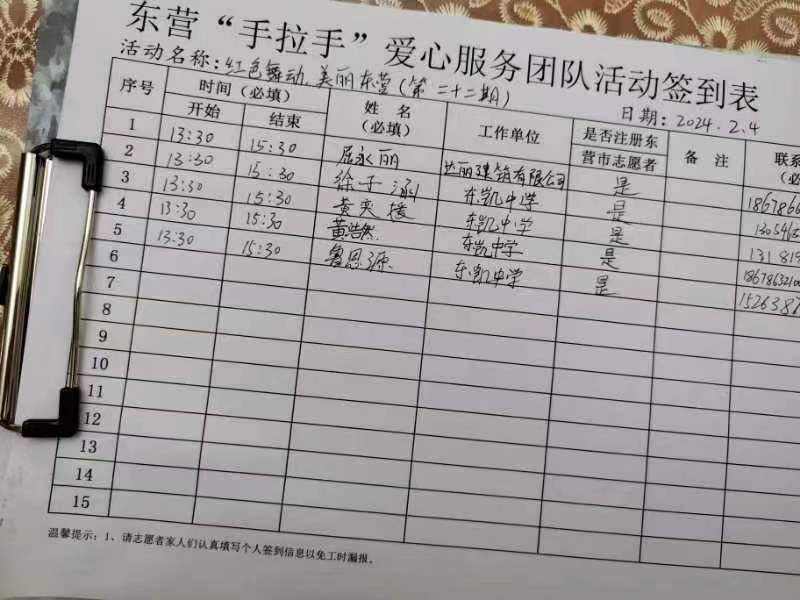 东营“手拉手”爱心服务团队活动签到表
活动名称：红色舞动.美丽东营（第二十二期） 日期：2024.2.4
序号 时间（必填） 姓名（必填） 工作单位 是否注册东营市志愿者 备注 联系
开始 结束
1 13:30 15:30 屈永丽 达丽建筑有限公司 是
2 13:30 15:30 徐子涵 东凯中学 是
3 13:30 15:30 黄奕援 东凯中学 是
4 13:30 15:30 黄浩然 东凯中学 是
5 13:30 15:30 鲁思源 东凯中学 是
6
7
8
9
10
11
12
13
14
15
温馨提示：1、请志愿者家人们认真填写个人签到信息以免工时漏报。